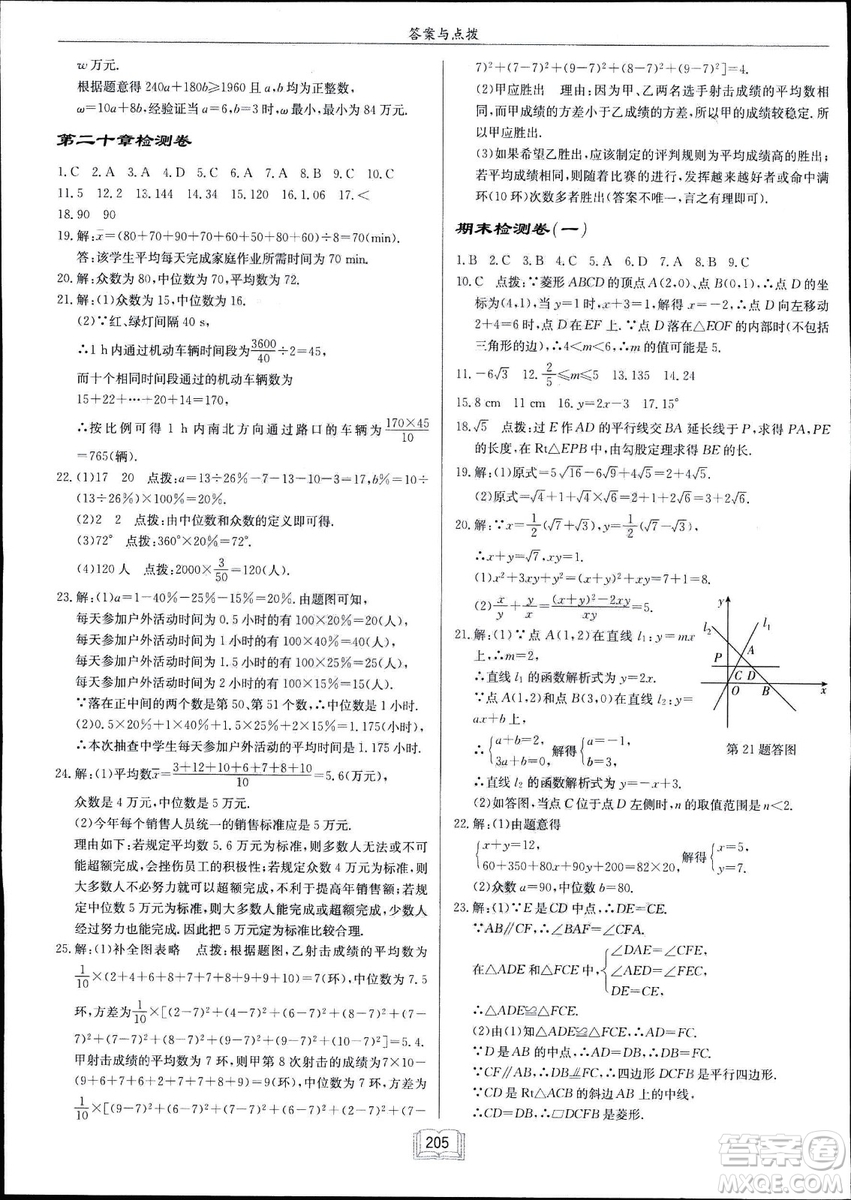 答案与点拨
w万元.
根据题意得240a+180b≥1960且a,b均为正整数,
ω=10a+8b,经验证当a=6,b=3时,ω最小,最小为84万元.
第二十章检测卷
1.C 2.A 3.A 4.D 5.C 6.D 7.D 8.D 9.C 10.B
11.5 12.2 13.144 14.34 15.120 16.1.06 17.<
18.90 90
19.解:x̄=(80+70+90+70+60+50+80+60)÷8=70(min).
答:该学生平均每天完成家庭作业所需时间为70 min.
20.解:众数为80,中位数为70,平均数为72.
21.解:(1)众数为15,中位数为16.
(2)∵红、绿灯间隔40 s,
∴1 h内通过机动车辆时间段为3600/40÷2=45,
而十个相同时间段通过的机动车辆数为
15+22+…+16=170(辆),
∴按比例可得1 h内南北方向通过路口的车辆为170×45/10
=765(辆).
22.(1)17 20 点拨:a=13÷26%-7-13-10-3=17,b%=10÷
(13÷26%)×100%=20%.
(2)2 2 点拨:由中位数和众数的定义即可得.
(3)72° 点拨:360°×20%=72°.
(4)120人 点拨:2000×3/50=120(人).
23.解:(1)a=1-40%-25%-15%=20%.由题图可知,
每天参加户外活动时间为0.5小时的有100×20%=20(人),
每天参加户外活动时间为1小时的有100×40%=40(人),
每天参加户外活动时间为1.5小时的有100×25%=25(人),
每天参加户外活动时间为2小时的有100×15%=15(人),
∵落在正中间的两个数是第50、第51个数,∴中位数是1小时.
(2)0.5×20%+1×40%+1.5×25%+2×15%=1.175(小时),
∴本次抽查中学生每天参加户外活动的平均时间是1.175小时.
24.解:(1)平均数x̄=3+12+10+6+7+8+10/10=5.6(万元),
众数是4万元,中位数是5万元.
(2)今年每个销售人员统一的销售标准应是5万元.
理由如下:若规定平均数5.6万元为标准,则多数人无法或不可
能超额完成,会挫伤员工的积极性;若规定众数4万元为标准,则
大多数人不必努力就可以超额完成,不利于提高年销售额;若规
定中位数5万元为标准,则大多数人能完成或超额完成,少数人
经过努力也能完成.因此把5万元定为标准比较合理.
25.解:(1)补全图表略 点拨:根据题图,乙射击成绩的平均数为
1/10×(2+4+6+8+7+7+8+9+9+10)=7(环),中位数为7.5
环,方差为1/10×[(2-7)²+(4-7)²+(6-7)²+(8-7)²+(7-
7)²+(7-7)²+(8-7)²+(9-7)²+(9-7)²+(10-7)²]=5.4.
甲射击成绩的平均数为7环,则甲第8次射击的成绩为7×10-
(9+6+7+6+2+7+7+8+9)=9(环),中位数为7环,方差为
1/10×[(9-7)²+(6-7)²+(7-7)²+(6-7)²+(2-7)²+(7-
7)²+(7-7)²+(9-7)²+(8-7)²+(9-7)²]=4.
(2)甲应胜出 理由:因为甲、乙两名选手射击成绩的平均数相
同,而甲成绩的方差小于乙成绩的方差,所以甲的成绩较稳定.所
以甲应胜出.
(3)如果希望乙胜出,应该制定的评判规则为平均成绩高的胜出;
若平均成绩相同,则随着比赛的进行,发挥越来越好者或命中满
环(10环)次数多者胜出(答案不唯一,言之有理即可).
期末检测卷(一)
1.B 2.C 3.D 4.C 5.D 6.A 7.D 8.B 9.C
10.C 点拨:∵菱形ABCD的顶点A(2,0),点B(1,0),∴点D的坐
标为(4,1),当y=1时,x+3=1,解得x=-2,∴点D向左移动
2+4=6时,点D在EF上.∵点D落在△EOF的内部时(不包括
三角形的边),∴4<m<6,∴m的值可能是5.
11.-6√3 12.2/5≤m≤5 13.135 14.24
15.8 cm 11 cm 16.y=2x-3 17.15°
18.√5 点拨:过E作AD的平行线交BA延长线于点P.求PA,PE
的长度,在Rt△EPB中,由勾股定理求得BE的长.
19.解:(1)原式=5√16-6√9+4√3=2+4√3.
(2)原式=√4+1+√4-1+2√6=4+2√6.
20.解:∵x=1/2(√7+√3),y=1/2(√7-√3),
∴x+y=√7,xy=1.
(1)x²+xy+y²=(x+y)²-xy=7-1=6.
(2)x/y+y/x=(x+y)²-2xy/xy=5.
21.解:(1)∵点A(1,2)在直线l₁:y=mx
上,∴m=2,
∴直线l₁的函数解析式为y=2x.
∵点A(1,2)和点B(3,0)在直线l₂:y=
ax+b上,
∴{a+b=2, 3a+b=0,解得{a=-1, b=3.
∴直线l₂的函数解析式为y=-x+3.
y l₂ l₁ P A C D O B x
第21题答图
(2)如答图,当点C位于点D左侧时,n的取值范围是n<2.
22.解:(1)由题意得
{x+y=12, 60+350+80x+90y+200=82×20,解得{x=5, y=7.
(2)众数a=90,中位数b=80.
23.解:(1)∵E是CD中点,∴DE=CE.
∵AB∥CF,∴∠BAF=∠CFA.
在△ADE和△FCE中,{∠DAE=∠CFE, ∠AED=∠FEC, DE=CE,
∴△ADE≌△FCE.
(2)由(1)知△ADE≌△FCE,∴AD=FC.
∵D是AB的中点,∴AD=DB,∴DB=FC.
∵CF∥AB,∴DB⫽FC,∴四边形DCFB是平行四边形.
∵CD是Rt△ACB的斜边AB上的中线,
∴CD=DB,∴□DCFB是菱形.
205
答案圈